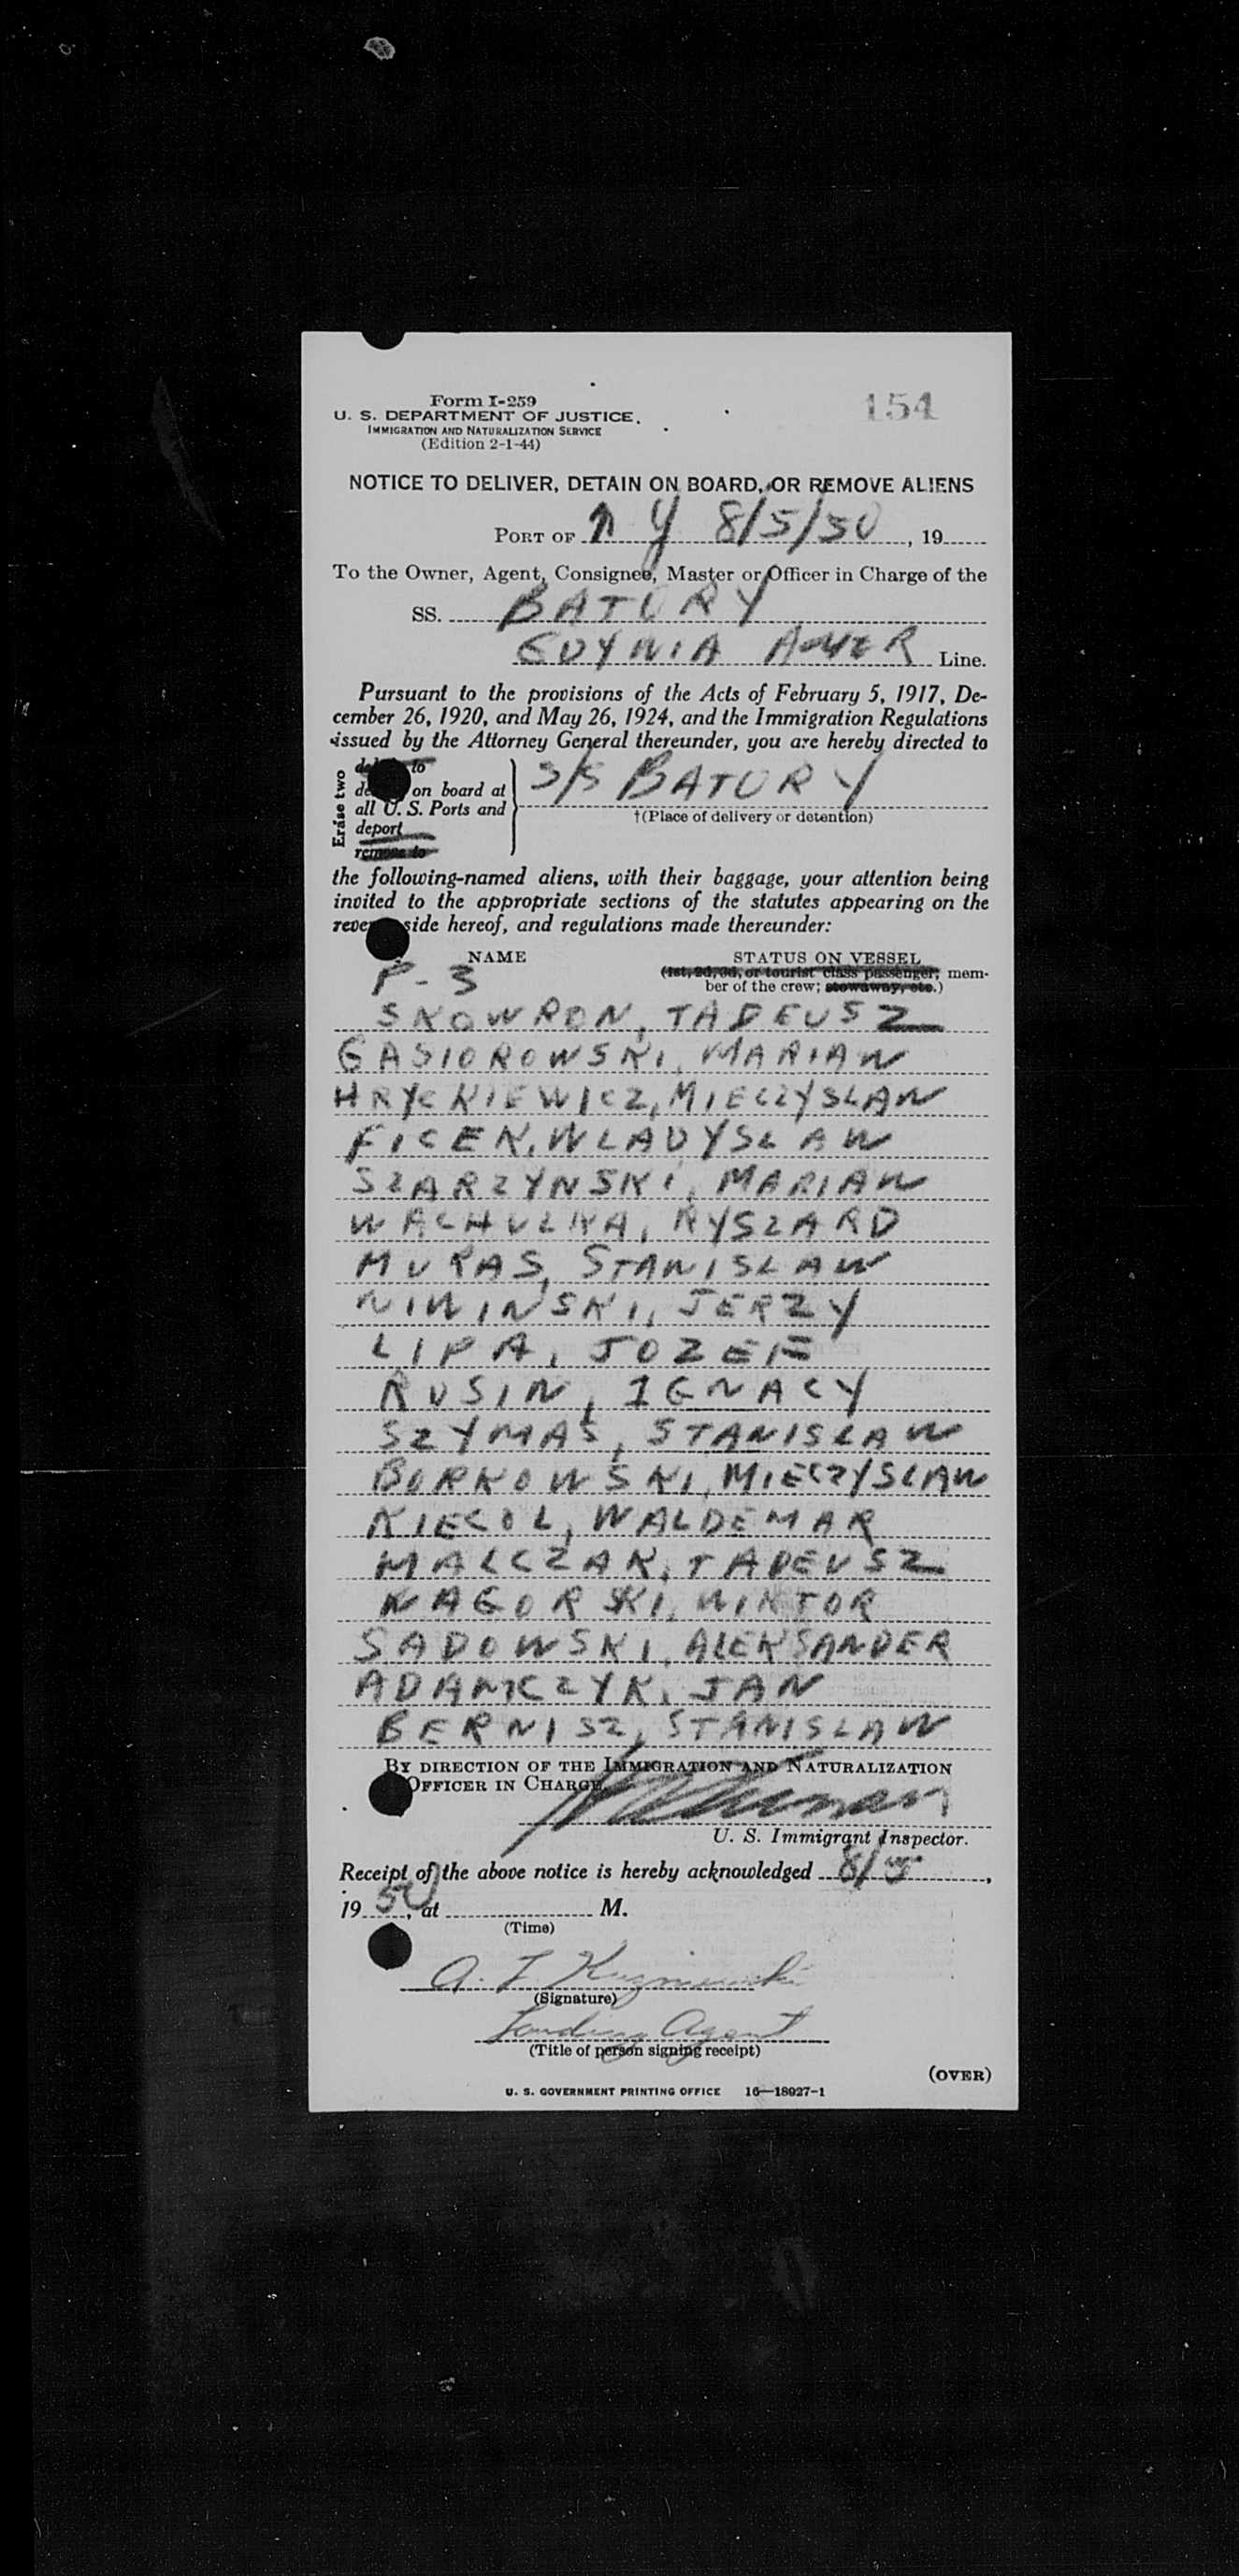 Form I-259
U. S. DEPARTMENT OF JUSTICE.
IMMIGRATION AND NATURALIZATION SERVICE
(Edition 2-1-44)
154
NOTICE TO DELIVER, DETAIN ON BOARD, OR REMOVE ALIENS
PORT OF N Y 8/5/50, 19
To the Owner, Agent, Consignee, Master or Officer in Charge of the
SS. BATORY
GDYNIA AMER Line.
Pursuant to the provisions of the Acts of February 5, 1917, De-
cember 26, 1920, and May 26, 1924, and the Immigration Regulations
issued by the Attorney General thereunder, you are hereby directed to
Erase two
to
on board at
all U. S. Ports and
deport
remove to
S/S BATORY
†(Place of delivery or detention)
the following-named aliens, with their baggage, your attention being
invited to the appropriate sections of the statutes appearing on the
side hereof, and regulations made thereunder:
NAME STATUS ON VESSEL
P-3 (1st, 2d, 3d, or tourist class passenger; mem-
ber of the crew; stowaway, etc.)
SKOWRON, TADEUSZ
GASIOROWSKI, MARIAN
HRYCKIEWICZ, MIECZYSLAW
FICEK, WLADYSLAW
SZARZYNSKI, MARIAN
WACHULKA, RYSZARD
MURAS, STANISLAW
NIWINSKI, JERZY
LIPA, JOZEF
RUSIN, IGNACY
SZYMAS, STANISLAW
BORKOWSKI, MIECZYSLAW
KIECOL, WALDEMAR
MALCZAK, TADEUSZ
NAGORSKI, WIKTOR
SADOWSKI, ALEKSANDER
ADAMCZYK, JAN
BERNISZ, STANISLAW
BY DIRECTION OF THE IMMIGRATION AND NATURALIZATION
OFFICER IN CHARGE.
U. S. Immigrant Inspector.
Receipt of the above notice is hereby acknowledged 8/5,
1950, at M.
(Time)
A. J. Kuzniewski
(Signature)
Landing Agent
(Title of person signing receipt)
(OVER)
U. S. GOVERNMENT PRINTING OFFICE 16—18027-1